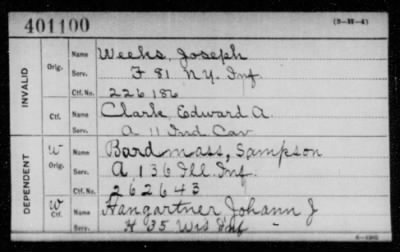 401100 (3-28-4)
INVALID
Orig. Name Weeks, Joseph
Serv. F 81 N.Y. Inf
Ctf. No. 226186
Ctf. Name Clark, Edward A.
Serv. A 11 Ind Cav
DEPENDENT
W Orig. Name Bardmass, Sampson
Serv. A, 136 Ill. Inf.
Ctf. No. 262643
W Ctf. Name Hangartner, Johann J
Serv. K 35 Wis Inf